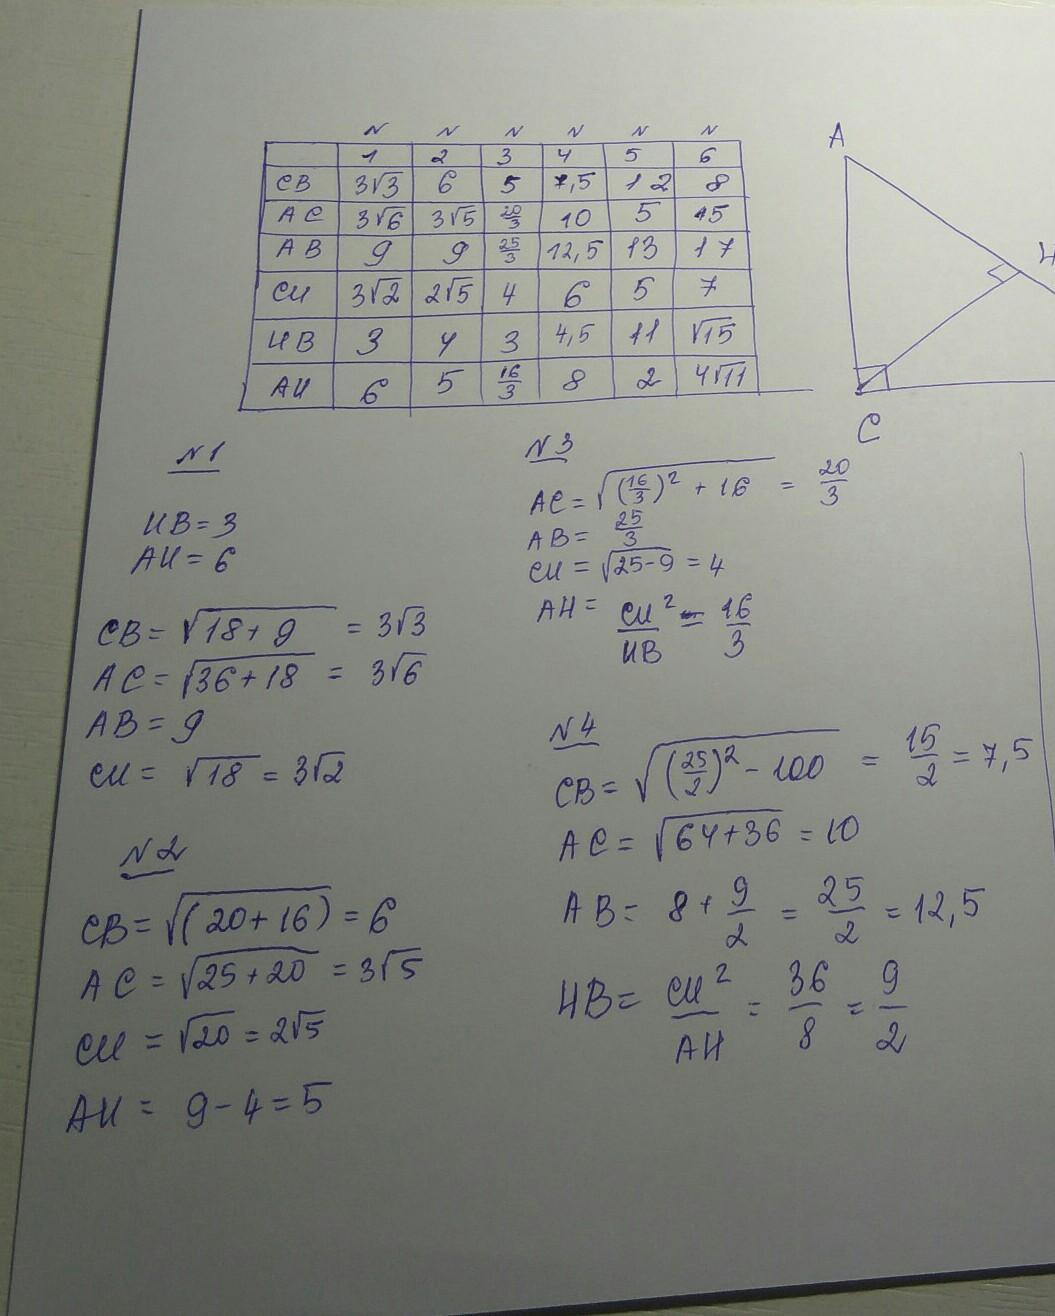 N N N N N N
1 2 3 4 5 6
CB 3√3 6 5 7,5 12 8
AC 3√6 3√5 20/3 10 5 15
AB 9 9 25/3 12,5 13 17
CH 3√2 2√5 4 6 5 7
HB 3 4 3 4,5 11 √15
AH 6 5 16/3 8 2 4√11
A
H
C
N1
HB = 3
AH = 6
CB = √18+9 = 3√3
AC = √36+18 = 3√6
AB = 9
CH = √18 = 3√2
N2
CB = √(20+16) = 6
AC = √25+20 = 3√5
CH = √20 = 2√5
AH = 9-4 = 5
N3
AC = √(16/3)² + 16 = 20/3
AB = 25/3
CH = √25-9 = 4
AH = CH²/HB = 16/3
N4
CB = √(25/2)² - 100 = 15/2 = 7,5
AC = √64+36 = 10
AB = 8 + 9/2 = 25/2 = 12,5
HB = CH²/AH = 36/8 = 9/2